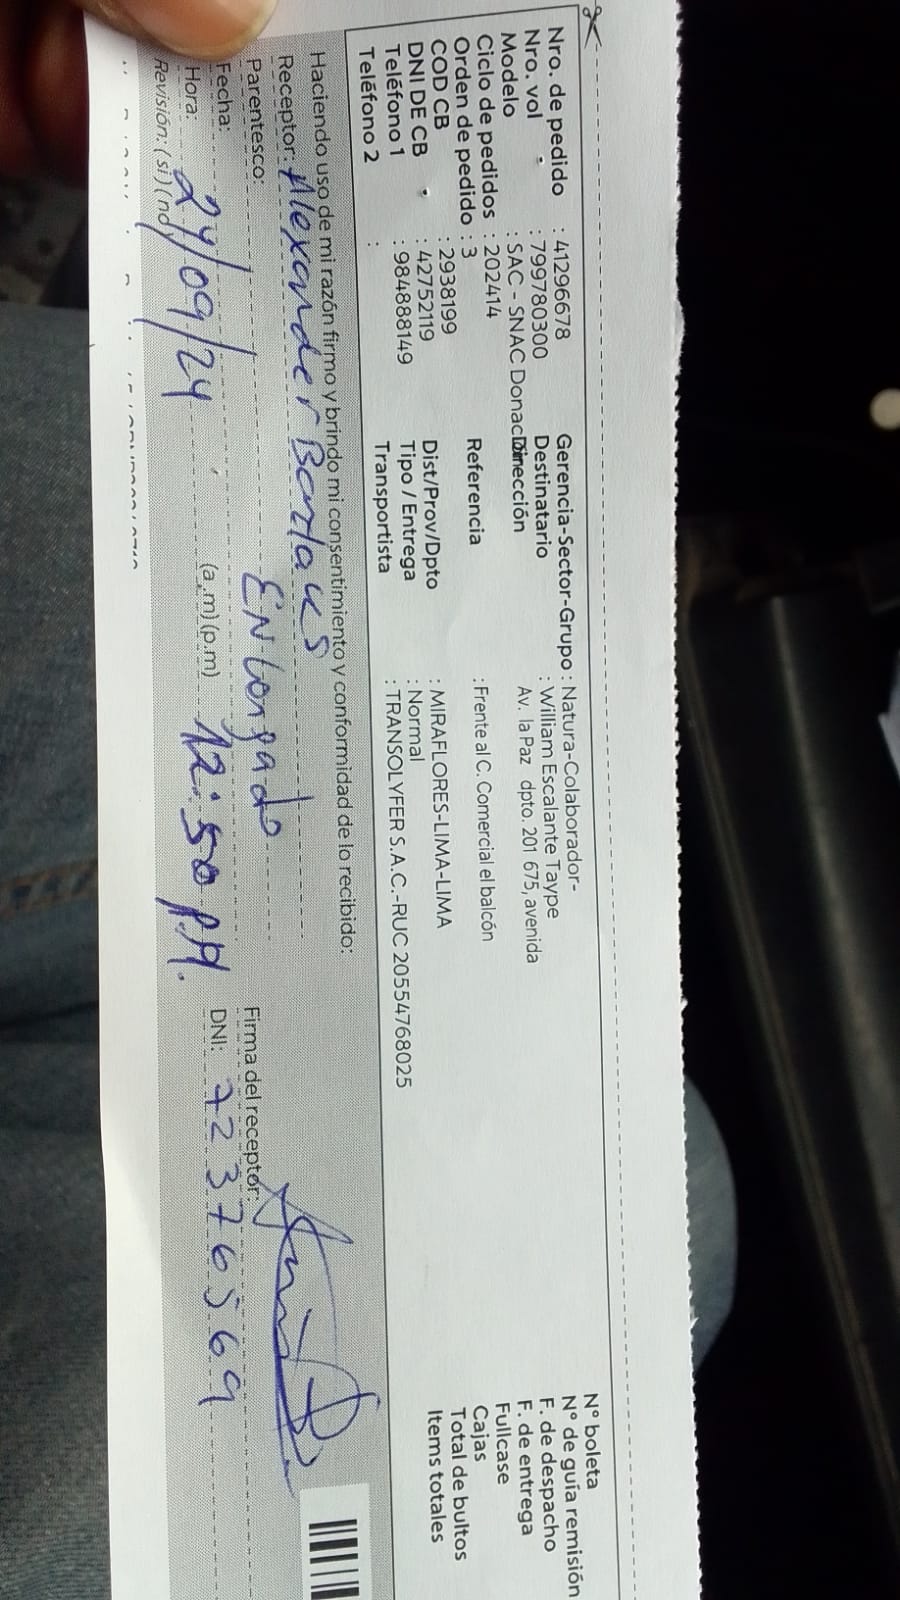 Nro. de pedido : 41296678
Nro. vol : 799780300
Modelo : SAC - SNAC Donac
Ciclo de pedidos : 202414
Orden de pedido : 3
COD CB : 2938199
DNI DE CB : 42752119
Teléfono 1 : 984888149
Teléfono 2 :
Gerencia-Sector-Grupo : Natura-Colaborador-
Destinatario : William Escalante Taype
Dirección Av. la Paz dpto. 201 675, avenida
Referencia : Frente al C. Comercial el balcón
Dist/Prov/Dpto : MIRAFLORES-LIMA-LIMA
Tipo / Entrega : Normal
Transportista : TRANSOLYFER S.A.C.-RUC 20554768025
N° boleta
N° de guía remisión
F. de despacho
F. de entrega
Fullcase
Cajas
Total de bultos
Items totales
Haciendo uso de mi razón firmo y brindo mi consentimiento y conformidad de lo recibido:
Receptor: Alexander
Parentesco: Encargado
Firma del receptor:
Fecha: 24/09/24
Hora: (a.m) (p.m) 12:50 P.M.
DNI: 72376569
Revisión: (si) (no)